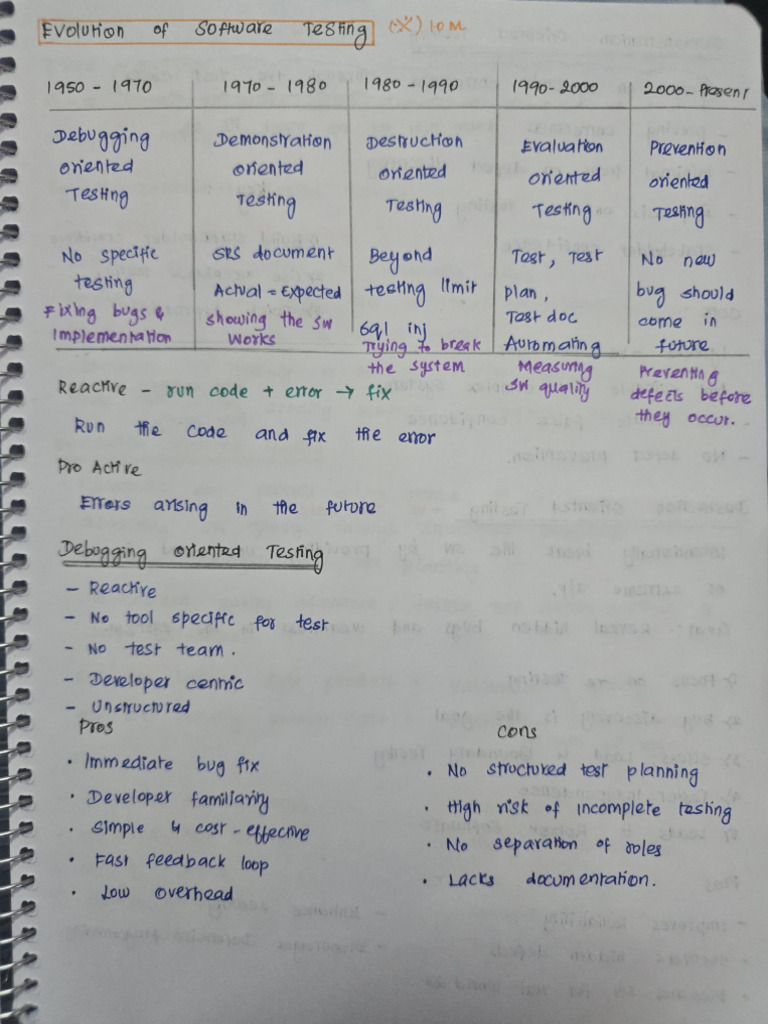 Evolution of Software Testing (※) 10M
1950 - 1970 1970 - 1980 1980 - 1990 1990 - 2000 2000 - Present
Debugging oriented Testing
Demonstration oriented Testing
Destruction oriented Testing
Evaluation oriented Testing
Prevention oriented Testing
No specific testing
Fixing bugs & Implementation
SRS document
Actual = Expected
showing the SW works
Beyond testing limit
Sql inj
Trying to break the system
Test, Test plan,
Test doc
Automating
Measuring SW quality
No new bug should come in future
Preventing defects before they occur.
Reactive - run code + error → fix
Run the code and fix the error
Pro Active
Errors arising in the future
Debugging oriented Testing
- Reactive
- No tool specific for test
- No test team.
- Developer centric
- Unstructured
Pros
• Immediate bug fix
• Developer familiarity
• Simple & cost-effective
• Fast feedback loop
• Low overhead
Cons
• No structured test planning
• High risk of incomplete testing
• No separation of roles
• Lacks documentation.